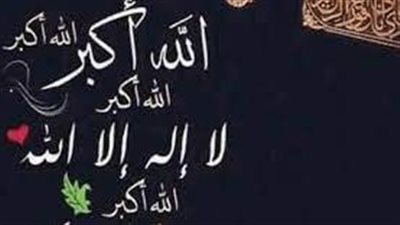 الله أكبر الله أكبر الله أكبر
الله أكبر
لا إله إلا الله
الله أكبر